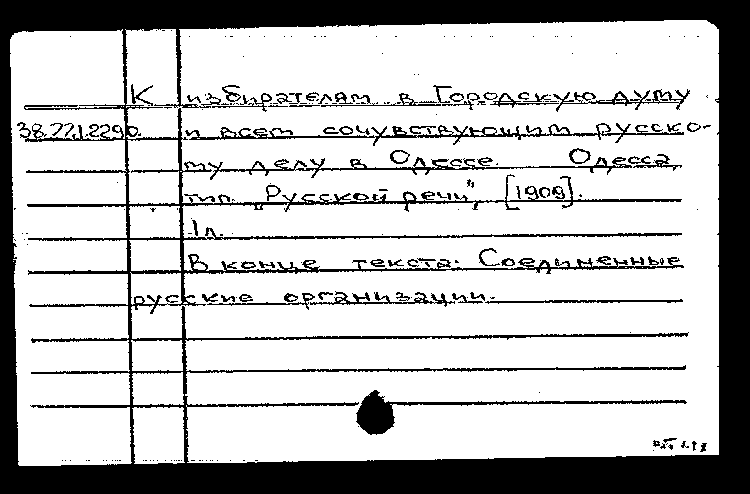 К избирателям в Городскую думу
38.77.1.2290 и всем сочувствующим русско-
му делу в Одессе. Одесса,
тип. „Русской речи", [1909].
1 л.
В конце текста: Соединенные
русские организации.